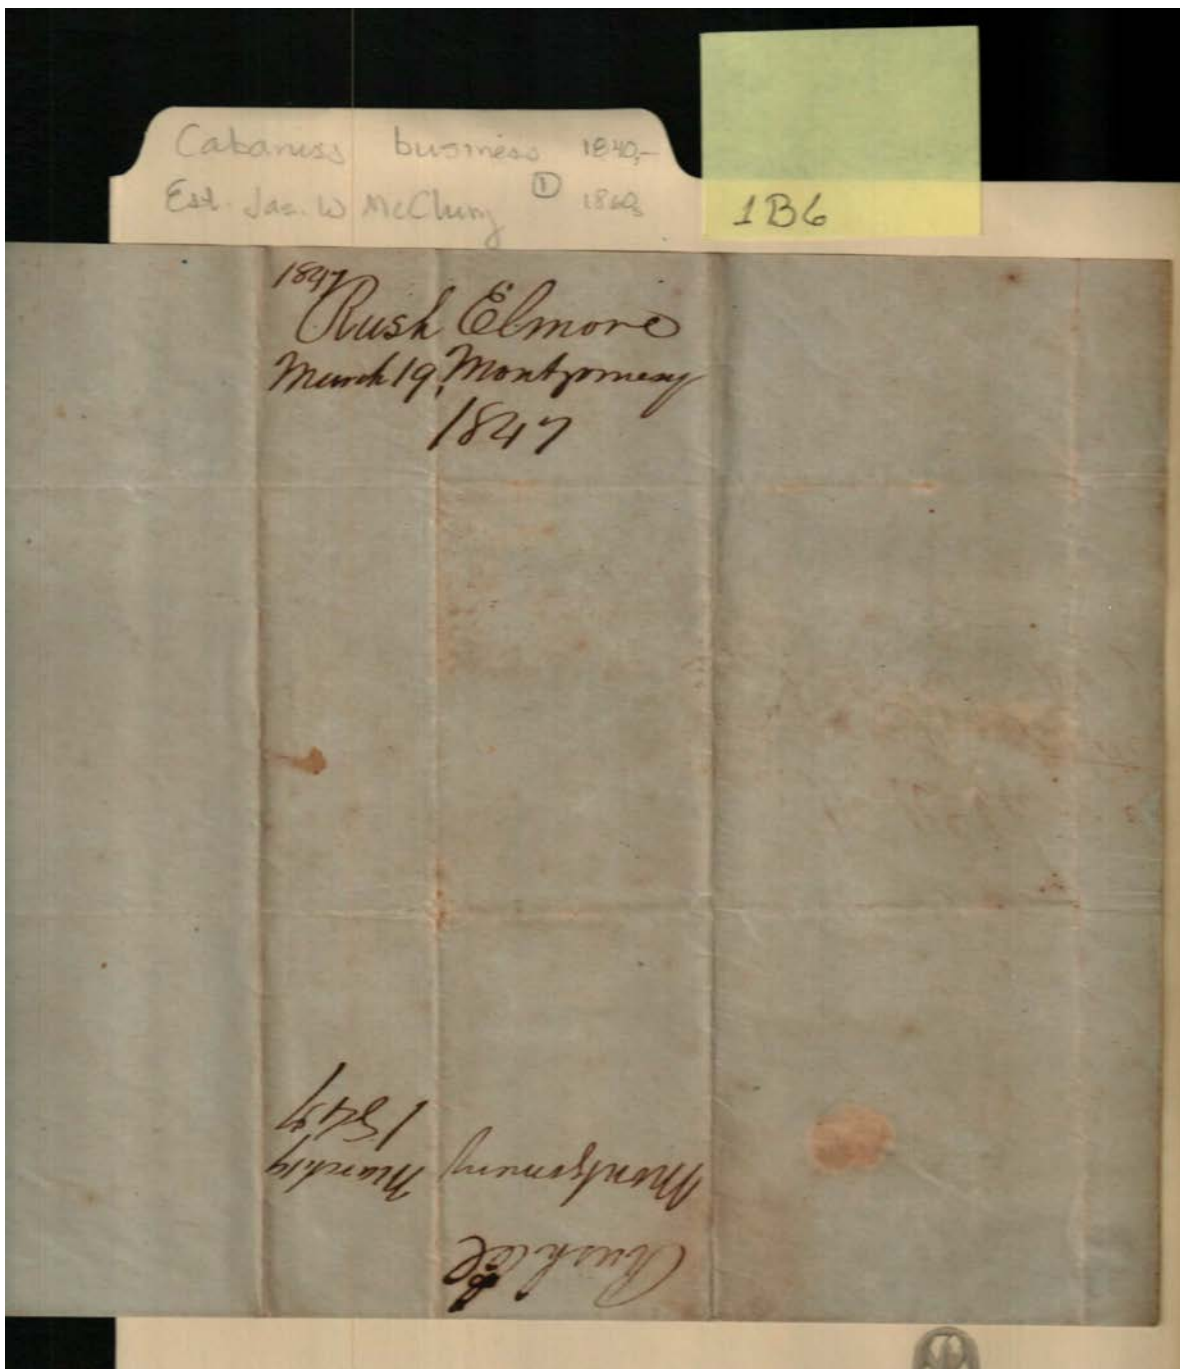 Cabaniss business 1840,-
Est. Jas. W McClung ① 1860s
1B6
1847
Rush Elmore
March 19, Montgomery
1847
Rush El
Montgomery
March 19
1847